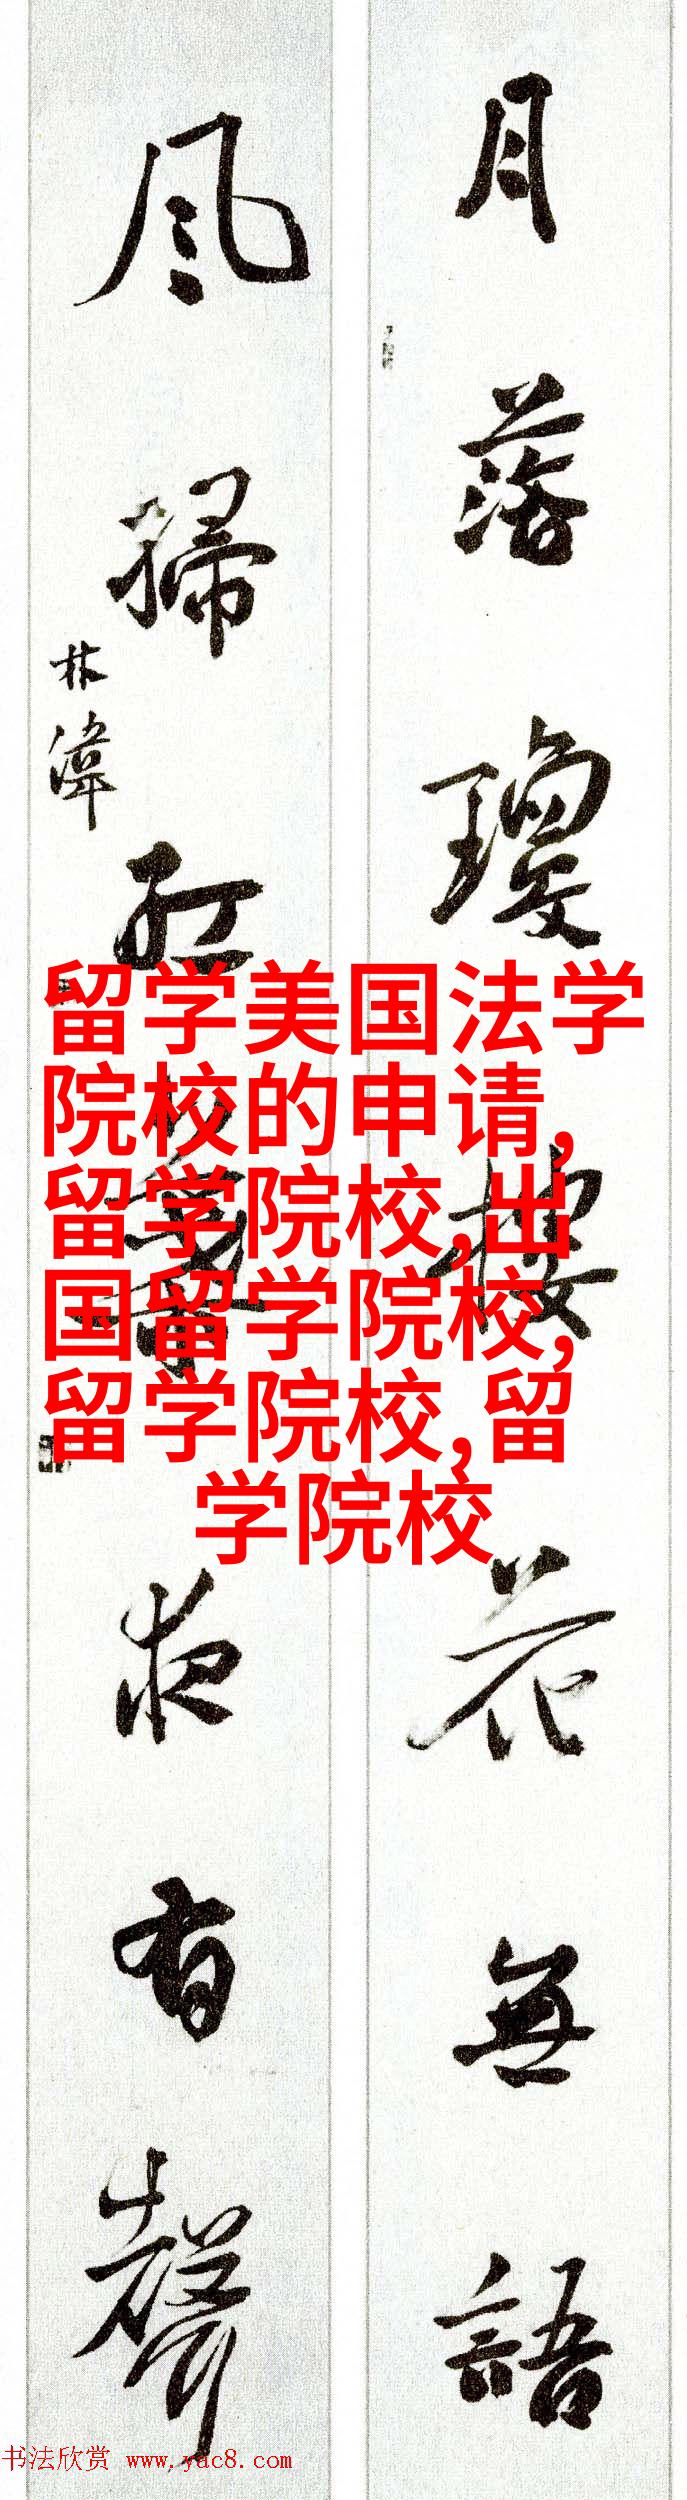 月落瓊樓花無語
風掃紅葉夜有聲
林濤
留学美国法学
院校的申请,
留学院校,出
国留学院校,
留学院校,留
学院校
书法欣赏 www.yac8.com